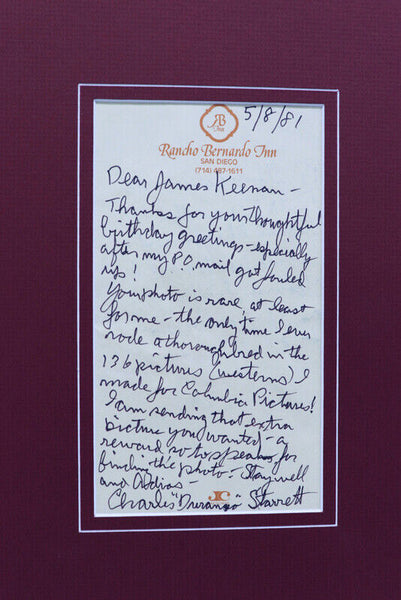 RB
Inn
5/8/81
Rancho Bernardo Inn
SAN DIEGO
(714) 487-1611
Dear James Keenan -
Thanks for your thoughtful
birthday greetings - especially
after my P.O. mail got fouled
up!
Your photo is rare, at least
for me - the only time I ever
rode a thoroughbred in the
136 pictures (westerns) I
made for Columbia Pictures!
I am sending that extra
picture you wanted - a
reward so to speak for
finding the photo - Stay well
and Adios -
Charles "Durango" Starrett